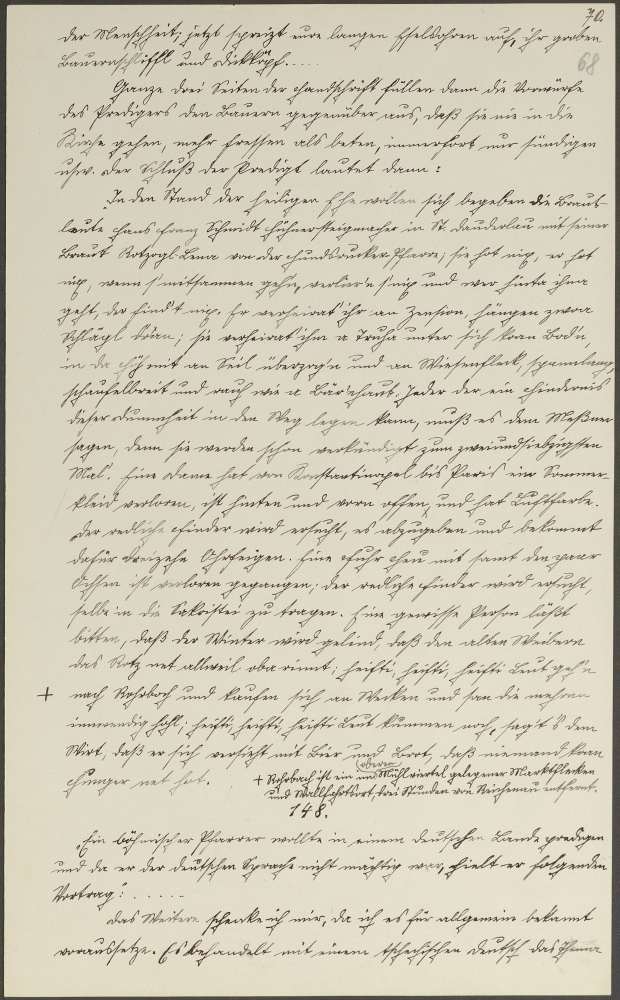 70.
68
der Menschheit; jetzt spreizt eure langen Eselsohren auf, ihr groben
Bauernschliffl und Dickköpf. ....
Ganze drei Seiten der Handschrift füllen dann die Vorwürfe
des Predigers den Bauern gegenüber aus, daß sie nie in die
Kirche gehen, mehr fressen als beten, immerfort nur sündigen
usw. Der Schluß der Predigt lautet dann:
"In den Stand der heiligen Ehe wollen sich begeben die Braut-
leute Hans Franz Schmidt Hühnersteigmacher in St. Dauderlau mit seiner
Braut Rotzogl-Lena von der Hundsrucker-Pfarre; sie hot nix, er hot
nix, wenn s' mitsammen gehn, verlier'n s' nix und wer hinta ihna
geht, der find't nix. Er verheirat' ihr an Zension, hängen zwoa
Schlägl dran; sie verheirat' ihm a Truha unter sich koan Bod'n
in da Höh mit an Seil überzog'n und an Wiesenfleck, spannlang,
schaufelbreit und rauh wie a Bärnhaut. Jeder der ein Hindernis
dieser Dummheit in den Weg legen kann, muß es dem Meßner
sagen, denn sie werden schon verkündigt zum zweiundsiebzigsten
Mal. Eine Dame hat von Konstantinopel bis Paris ein Sommer-
kleid verloren, ist hinten und vorn offen, und hat Luftfarbe.
Der redliche Finder wird ersucht, es abzugeben und bekommt
dafür dreizehn Ohrfeigen. Eine Fuhr Heu mit samt den paar
Ochsen ist verloren gegangen; der redliche Finder wird ersucht,
selbe in die Sakristei zu tragen. Eine gewisse Person läßt
bitten, daß der Winter wird gelind, daß den alten Weibern
das Rotz net allweil oba rinnt; heifti, heifti, heifti Leut geh'n
+ nach Rohrbach und kaufen sich an Wecken und san die mehran
innwendig hohl; heifti, heifti, heifti Leut kummen noch, sagt's dem
Wirt, daß er sich versieht mit Bier und Brot, daß niemand koan
Hunger net hot.
+ Rohrbach ist ein im oberen Mühlviertel gelegener Marktflecken
und Wallfahrtsort, drei Stunden von Reichenau entfernt.
148.
"Ein böhmischer Pfarrer wollte in einem deutschen Lande predigen
und da er der deutschen Sprache nicht mächtig war, hielt er folgenden
Vortrag": .....
Das Weitere schenke ich mir, da ich es für allgemein bekannt
voraussetze. Es behandelt mit einem tschechischen Deutsch das Thema